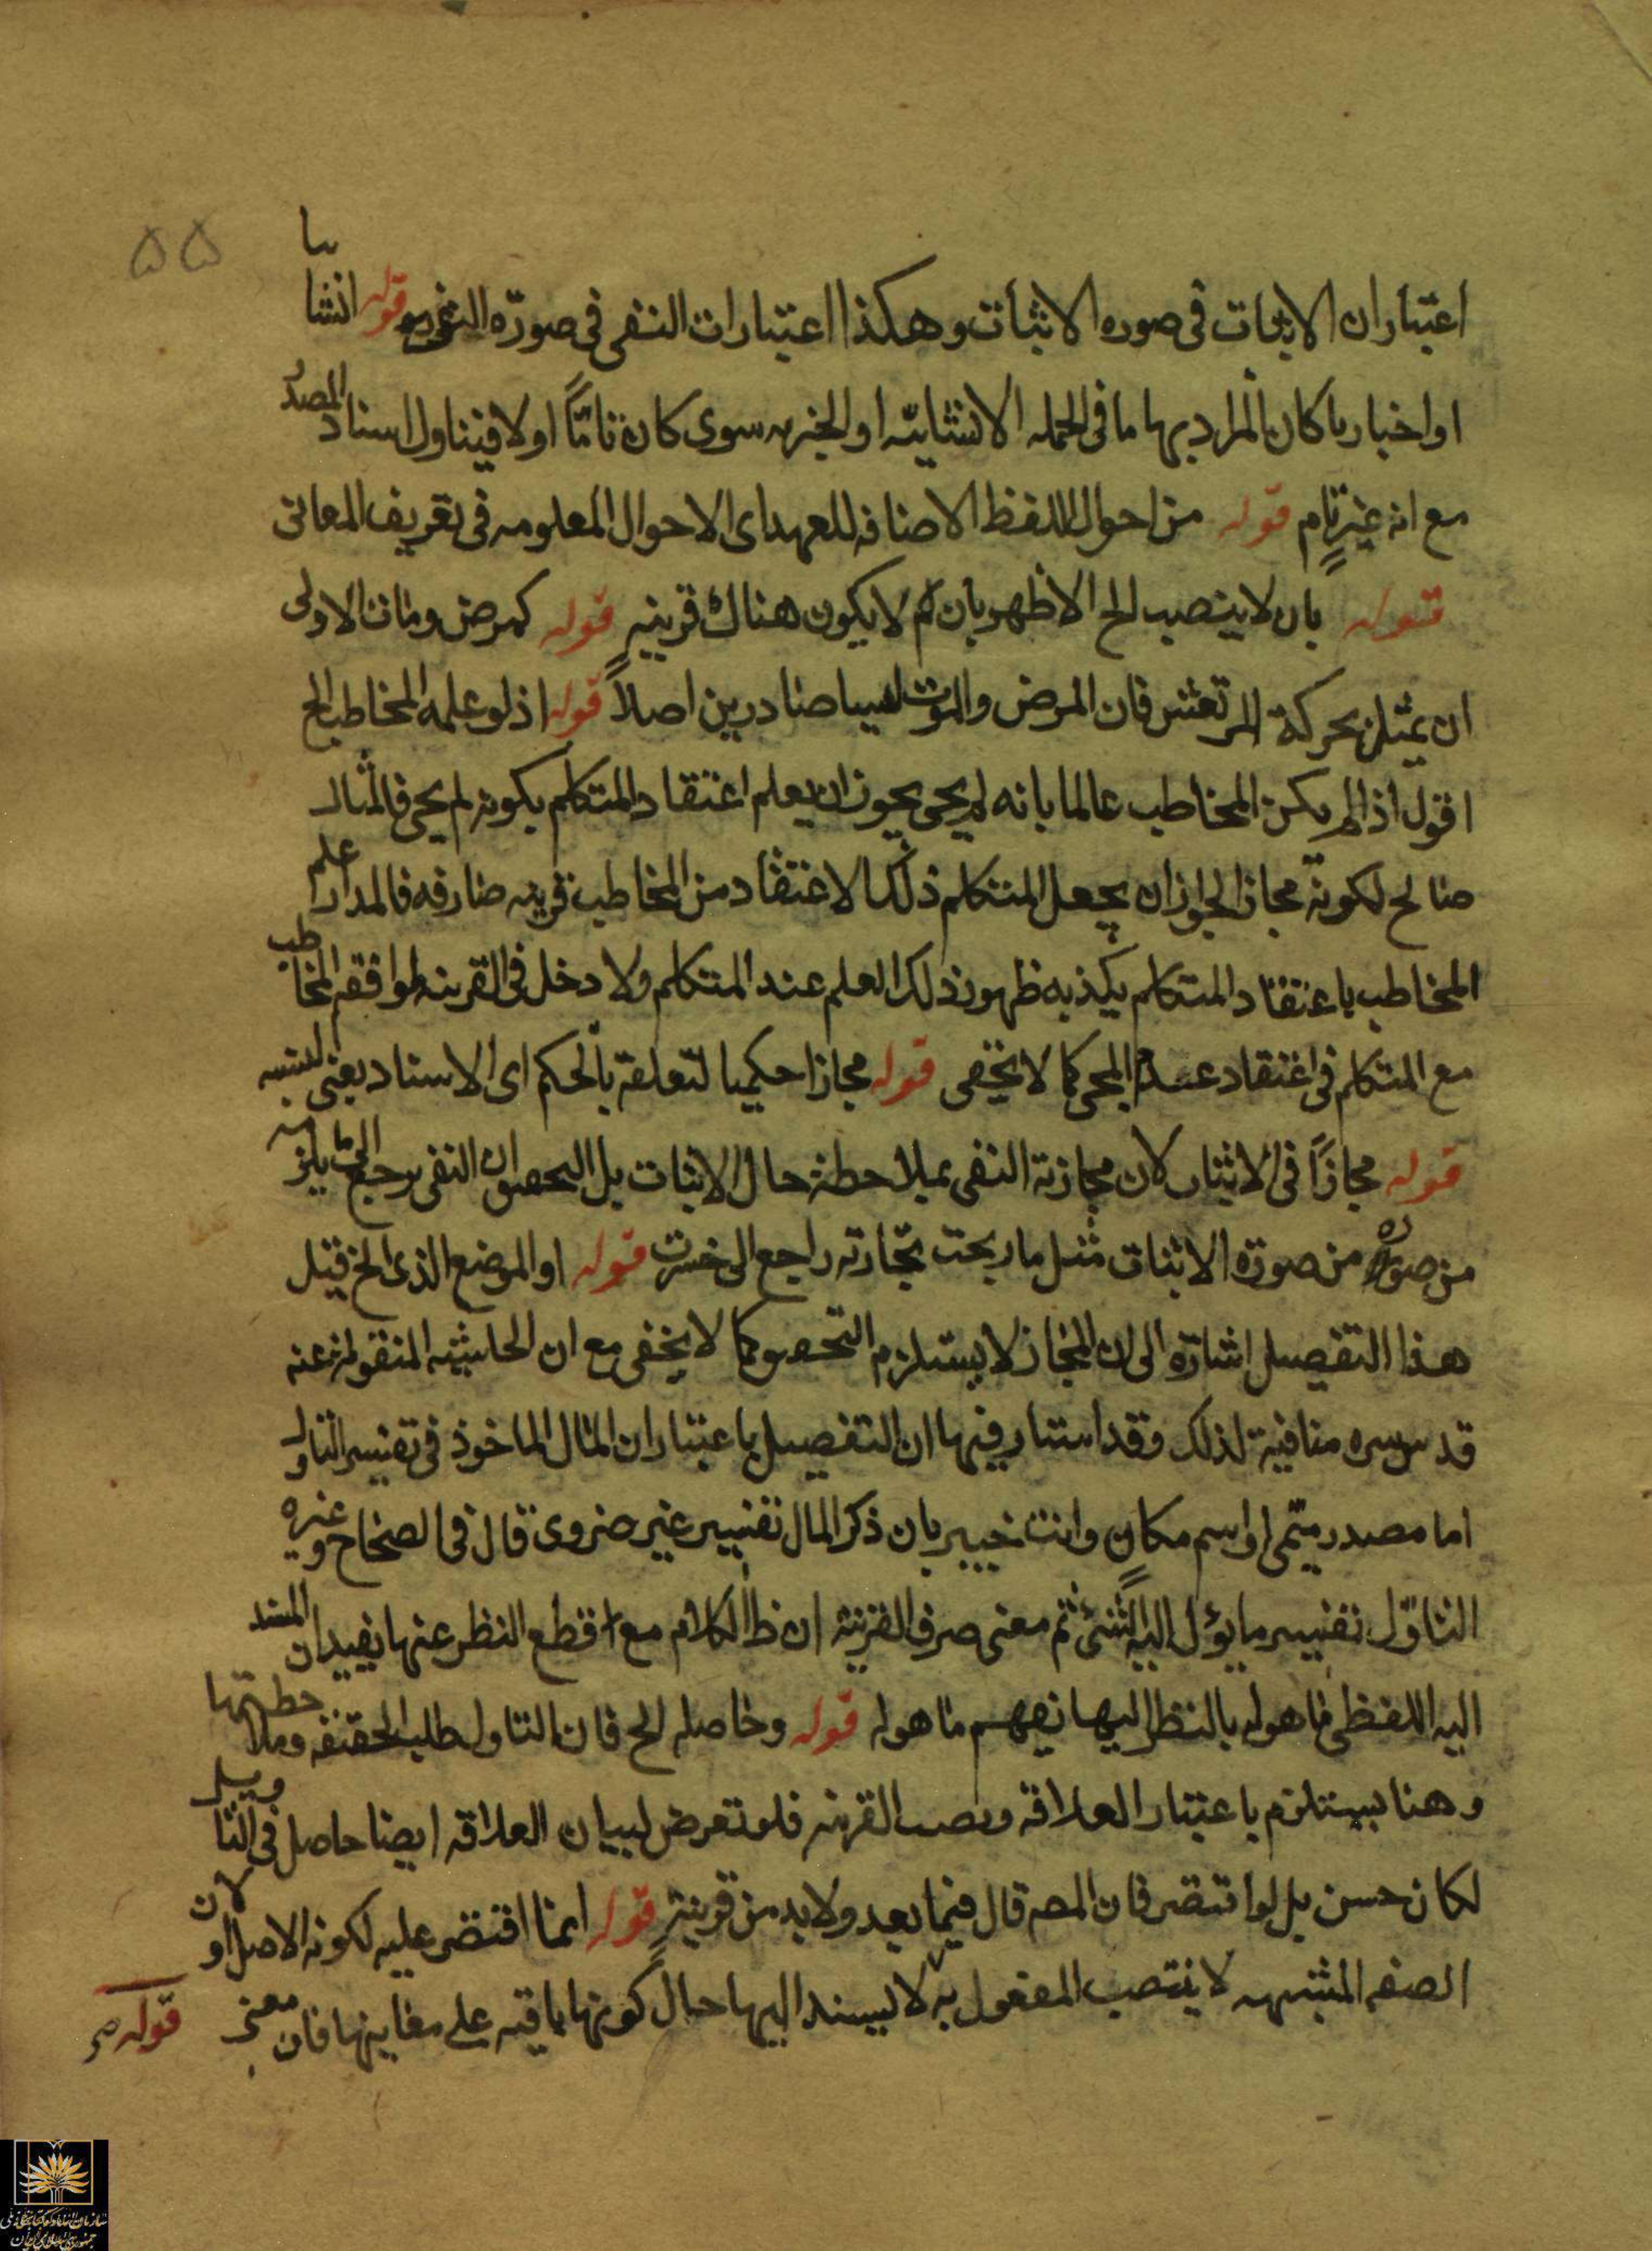 ۵۵
اعتبارات الاثبات فى صوره الاثبات وهكذا اعتبارات النفى فى صورة النفى قوله انشائيا
او اخباريا كان المراد بهما ما فى الجمله الانشائيه او الخبريه سوى كان تامّاً او لا فيتناول اسناد المصدر
مع انه غير تام قوله من احوال اللفظ الاضافه للعهد اى الاحوال المعلومه فى تعريف المعانى
قوله بان لا ينصب الخ الاظهر بان لم لا يكون هناك قرينه قوله كمرض ومات الاولى
ان يمثل بحركة المرتعش فان المرض والموت ليسا صادرين اصلاً قوله اذ لو علمه المخاطب الخ
اقول اذا لم يكن المخاطب عالما بانه لم يجئ يجوز ان يعلم اعتقاد المتكلم بكونه لم يجئ فالمثال
صالح لكونه مجاز الجواز ان يجعل المتكلم ذلك الاعتقاد من المخاطب قرينه صارفه فالمدار علم
المخاطب باعتقاد المتكلم بكذبه ظهور ذلك العلم عند المتكلم ولا دخل فى القرينه لموافقه المخاطب
مع المتكلم فى اعتقاد عدم المجئ كما لا يخفى قوله مجازا حكميا لتعلقه بالحكم اى الاسناد يعنى النسبه
قوله مجازاً فى الاثبات لان مجازية النفى بملاحظة حال الاثبات بل التحقيق ان النفى يرجع الى ما يلزمه
من صوره من صورة الاثبات مثل ما ربحت تجارته راجع الى خسرت قوله او الموضع الذى الخ قيل
هذا التفصيل اشارة الى ان المجاز لا يستلزم التحقيق كما لا يخفى مع ان الحاشيه المنقوله عنه
قدس سره منافية لذلك وقد اشار فيها ان التفصيل باعتبار ان المال الماخوذ فى تفسير التاول
اما مصدر ميمى او اسم مكان وانت خبير بان ذكر المال تفسير غير ضروى قال فى الصحاح وغيره
التاوّل تفسير ما يؤل اليه الشئ ثم معنى صرف القرينة ان ظ الكلام مع قطع النظر عنها يفيد ان المسند
اليه اللفظى ما هو له بالنظر اليها يفهم ما هو له قوله وحاصله الخ فان التاول طلب الحقيقه وملاحظتها
وهنا يستلزم باعتبار العلاقه ونصب القرينه فلو تعرض لبيان العلاقه ايضا حاصل فى التاويل
لكان حسن بل لو اقتصر فان المصـ قال فيما بعد ولا بد من قرينة قوله انما اقتصر عليه لكونه الاصل او لان
الصفه المشبهه لا ينتصب المفعول به لا يسند اليها حال كونها باقيه على معانيها فان معنى
قوله